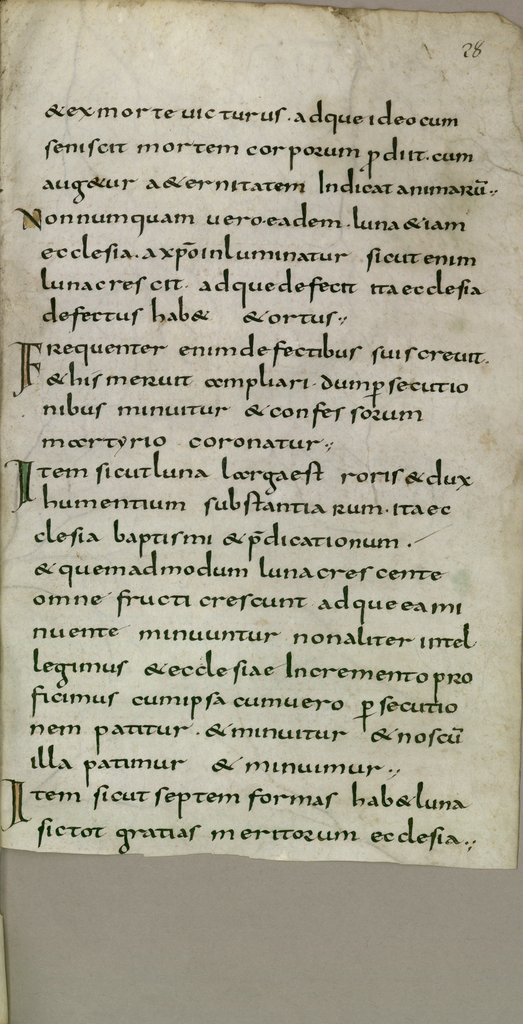 28
& ex morte uicturus. adque ideo cum
seniscit mortem corporum p̄diit. cum
aug&ur a&ernitatem Indicat animarū.,
Non numquam uero. eadem. luna &iam
ecclesia. a xp̄o inluminatur sicut enim
luna crescit. adque defecit ita ecclesia
defectus hab& & ortus.,
Frequenter enim defectibus suis creuit.
& his meruit ampliari. dum p̲secutio
nibus minuitur & confessorum
martyrio coronatur.,
Item sicut luna larga est roris & dux
humentium substantiarum. ita ec
clesia baptismi & p̄dicationum.
& quemadmodum luna crescente
omne fructi crescunt adque ea mi
nuente minuuntur non aliter intel
legimus & ecclesiae Incremento pro
ficimus cum ipsa cum uero p̲secutio
nem patitur. & minuitur & nos cū
illa patimur & minuimur.,
Item sicut septem formas hab& luna
sic tot gratias meritorum ecclesia.,